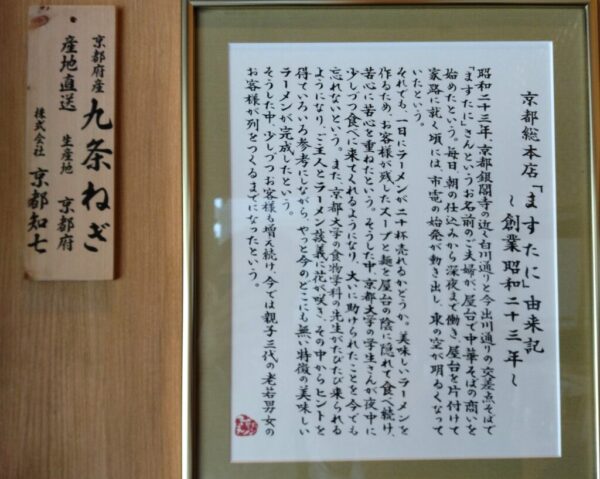 京都総本店「ますたに」由来記
～創業昭和二十三年～
昭和二十三年、京都銀閣寺の近く白川通りと今出川通りの交差点そばで
「ますたに」さんというお名前のご夫婦が、屋台で中華そばの商いを
始めたという。毎日、朝の仕込みから深夜まで働き、屋台を片付けて
家路に就く頃には、市電の始発が動き出し、東の空が明るくなって
いたという。
それでも、一日にラーメンが二十杯売れるかどうか。美味しいラーメンを
作るため、お客様が残したスープと麺を屋台の陰に隠れて食べ続け、
苦心に苦心を重ねたという。そうした中、京都大学の学生さんが夜中に
少しづつ食べに来てくれるようになり、大いに助けられたことを今でも
忘れないという。また、京都大学の食物学科の先生がたびたび来られる
ようになり、ご主人とラーメン談義に花が咲き、その中からヒントを
得ていろいろ参考にしながら、やっと今のどこにも無い特徴の美味しい
ラーメンが完成したという。
そうした中、少しづつお客様も増え続け、今では親子三代の老若男女の
お客様が列をつくるまでになったという。
京都府産
九条ねぎ
産地直送
生産地 京都府
株式会社 京都知七